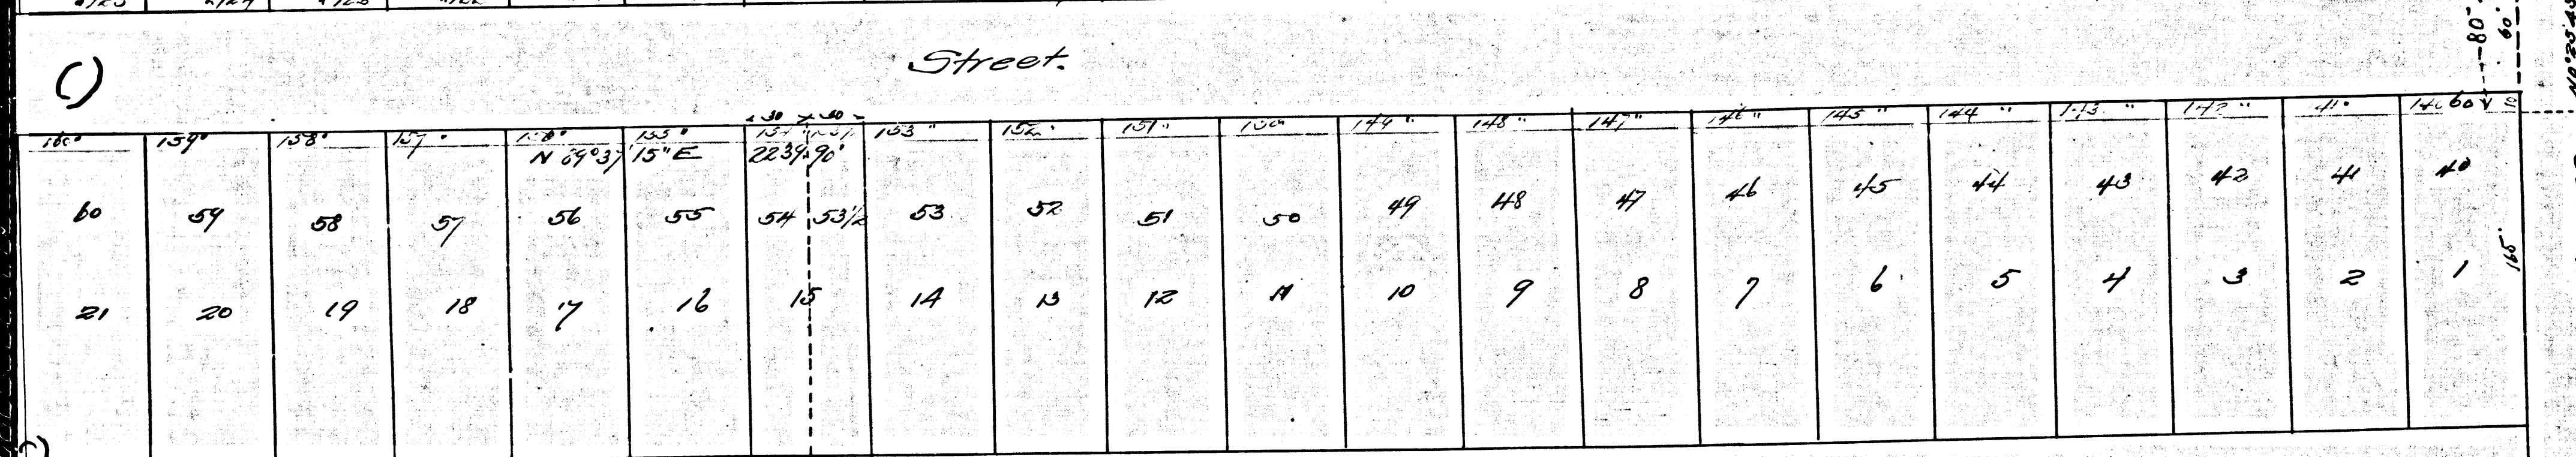 Street.
80' 60'
()
30 30
160" 159" 158" 157" 156" 155" 154" 153" 152" 151" 150" 149" 148" 147" 146" 145" 144" 143" 142" 41" 60
N 69°37'15" E 2239.90'
60 59 58 57 56 55 54 53½ 53 52 51 50 49 48 47 46 45 44 43 42 41 40
165'
21 20 19 18 17 16 15 14 13 12 11 10 9 8 7 6 5 4 3 2 1